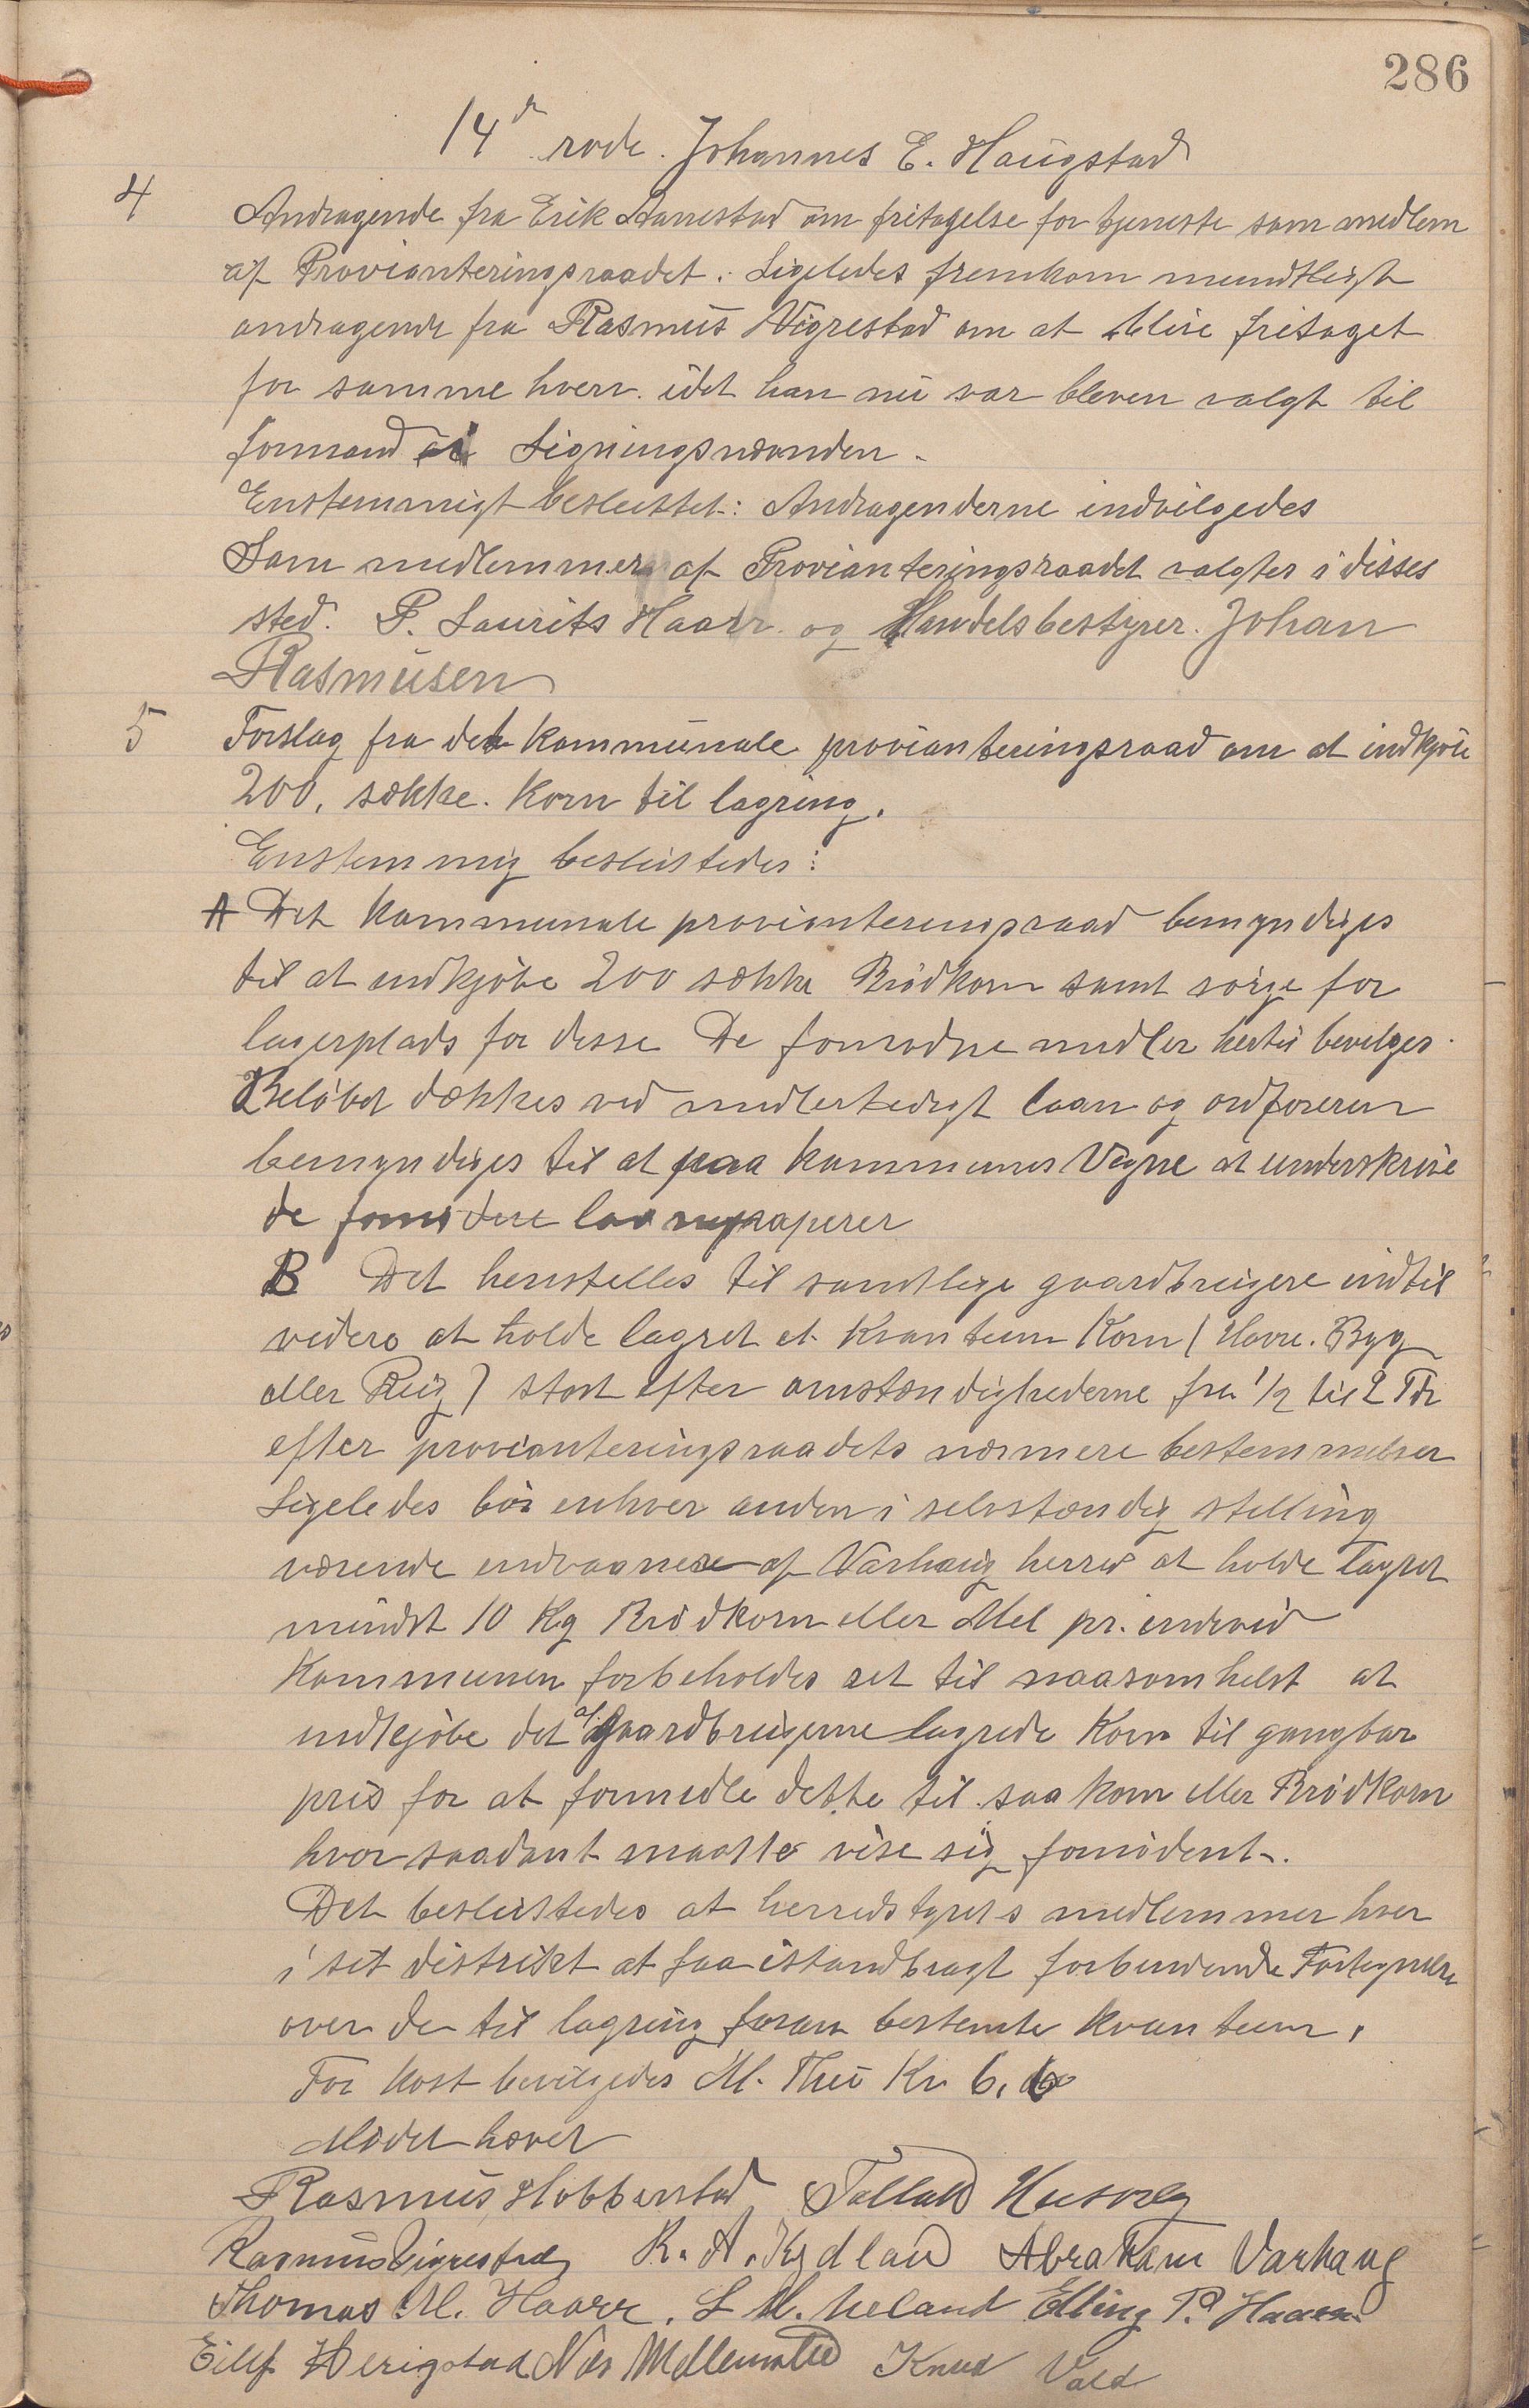 286
14d rode. Johannes E. Haugstad
4 Andragende fra Erik Aanestad om fritagelse for tjeneste som medlem
af Provianteringsraadet. Ligeledes fremkom mundtligt
andragende fra Rasmus Vigrestad om at blive fritaget
for samme hverv. idet han nu var bleven valgt til
formand i Ligningsnævnden.
Enstemmigt besluttet: Andragenderne indvilgedes
Som medlemmer af Provianteringsraadet valgtes i disses
sted. P. Laurits Haarr. og Handelsbestyrer. Johan
Rasmusen
5 Forslag fra det kommunale provianteringsraad om at indkjøbe
200, sække. Korn til lagring.
Enstemmig beslutedes:
A Det Kommunale provianteringsraad bemyndiges
til at indkjøbe 200 sække Brødkorn samt sørge for
lagerplads for disse De fornødne midler hertil bevilges.
Beløbet dækkes ved midlertidigt laan og ordføreren
bemyndiges til at paa kommunens Vegne at underskrive
de fornødne laanepapirer
B Det henstilles til samtlige gaardbrugere indtil
videre at holde lagret et Kvantum Korn (Havre. Byg
eller Rug) stort efter omstændighederne fra 1/2 til 2 Tdr
efter provianteringsraadets nærmere bestemmelser
Ligeledes bør enhver anden i selvstændig stilling
værende indvaanere af Varhaug herred at holde lagret
mindst 10 Kg Brødkorn eller Mel pr. individ
Kommunen forbeholdes ret til naarsomhelst at
indkjøbe det af Gaardbrugerne lagrede Korn til gangbar
pris for at formidle dette til saakorn eller Brødkorn
hvor saadant maatte vise sig fornødent.
Det beslutedes at herredstyrets medlemmer hver
i sit distrikt at faa istandbragt forbindende Fortegnelse
over de til lagring foran bestemte kvantum.
For kost bevilgedes M. Thu Kr. 6.
Mødet hævet
Rasmus Hobberstad Tollak Husveg
Rasmus Vigrestad R. A. Kydland Abraham Varhaug
Thomas M. Haarr. L M. Meland Elling P. Haarr
Eilef Herigstad Nils Mellemstrand Knud Vold